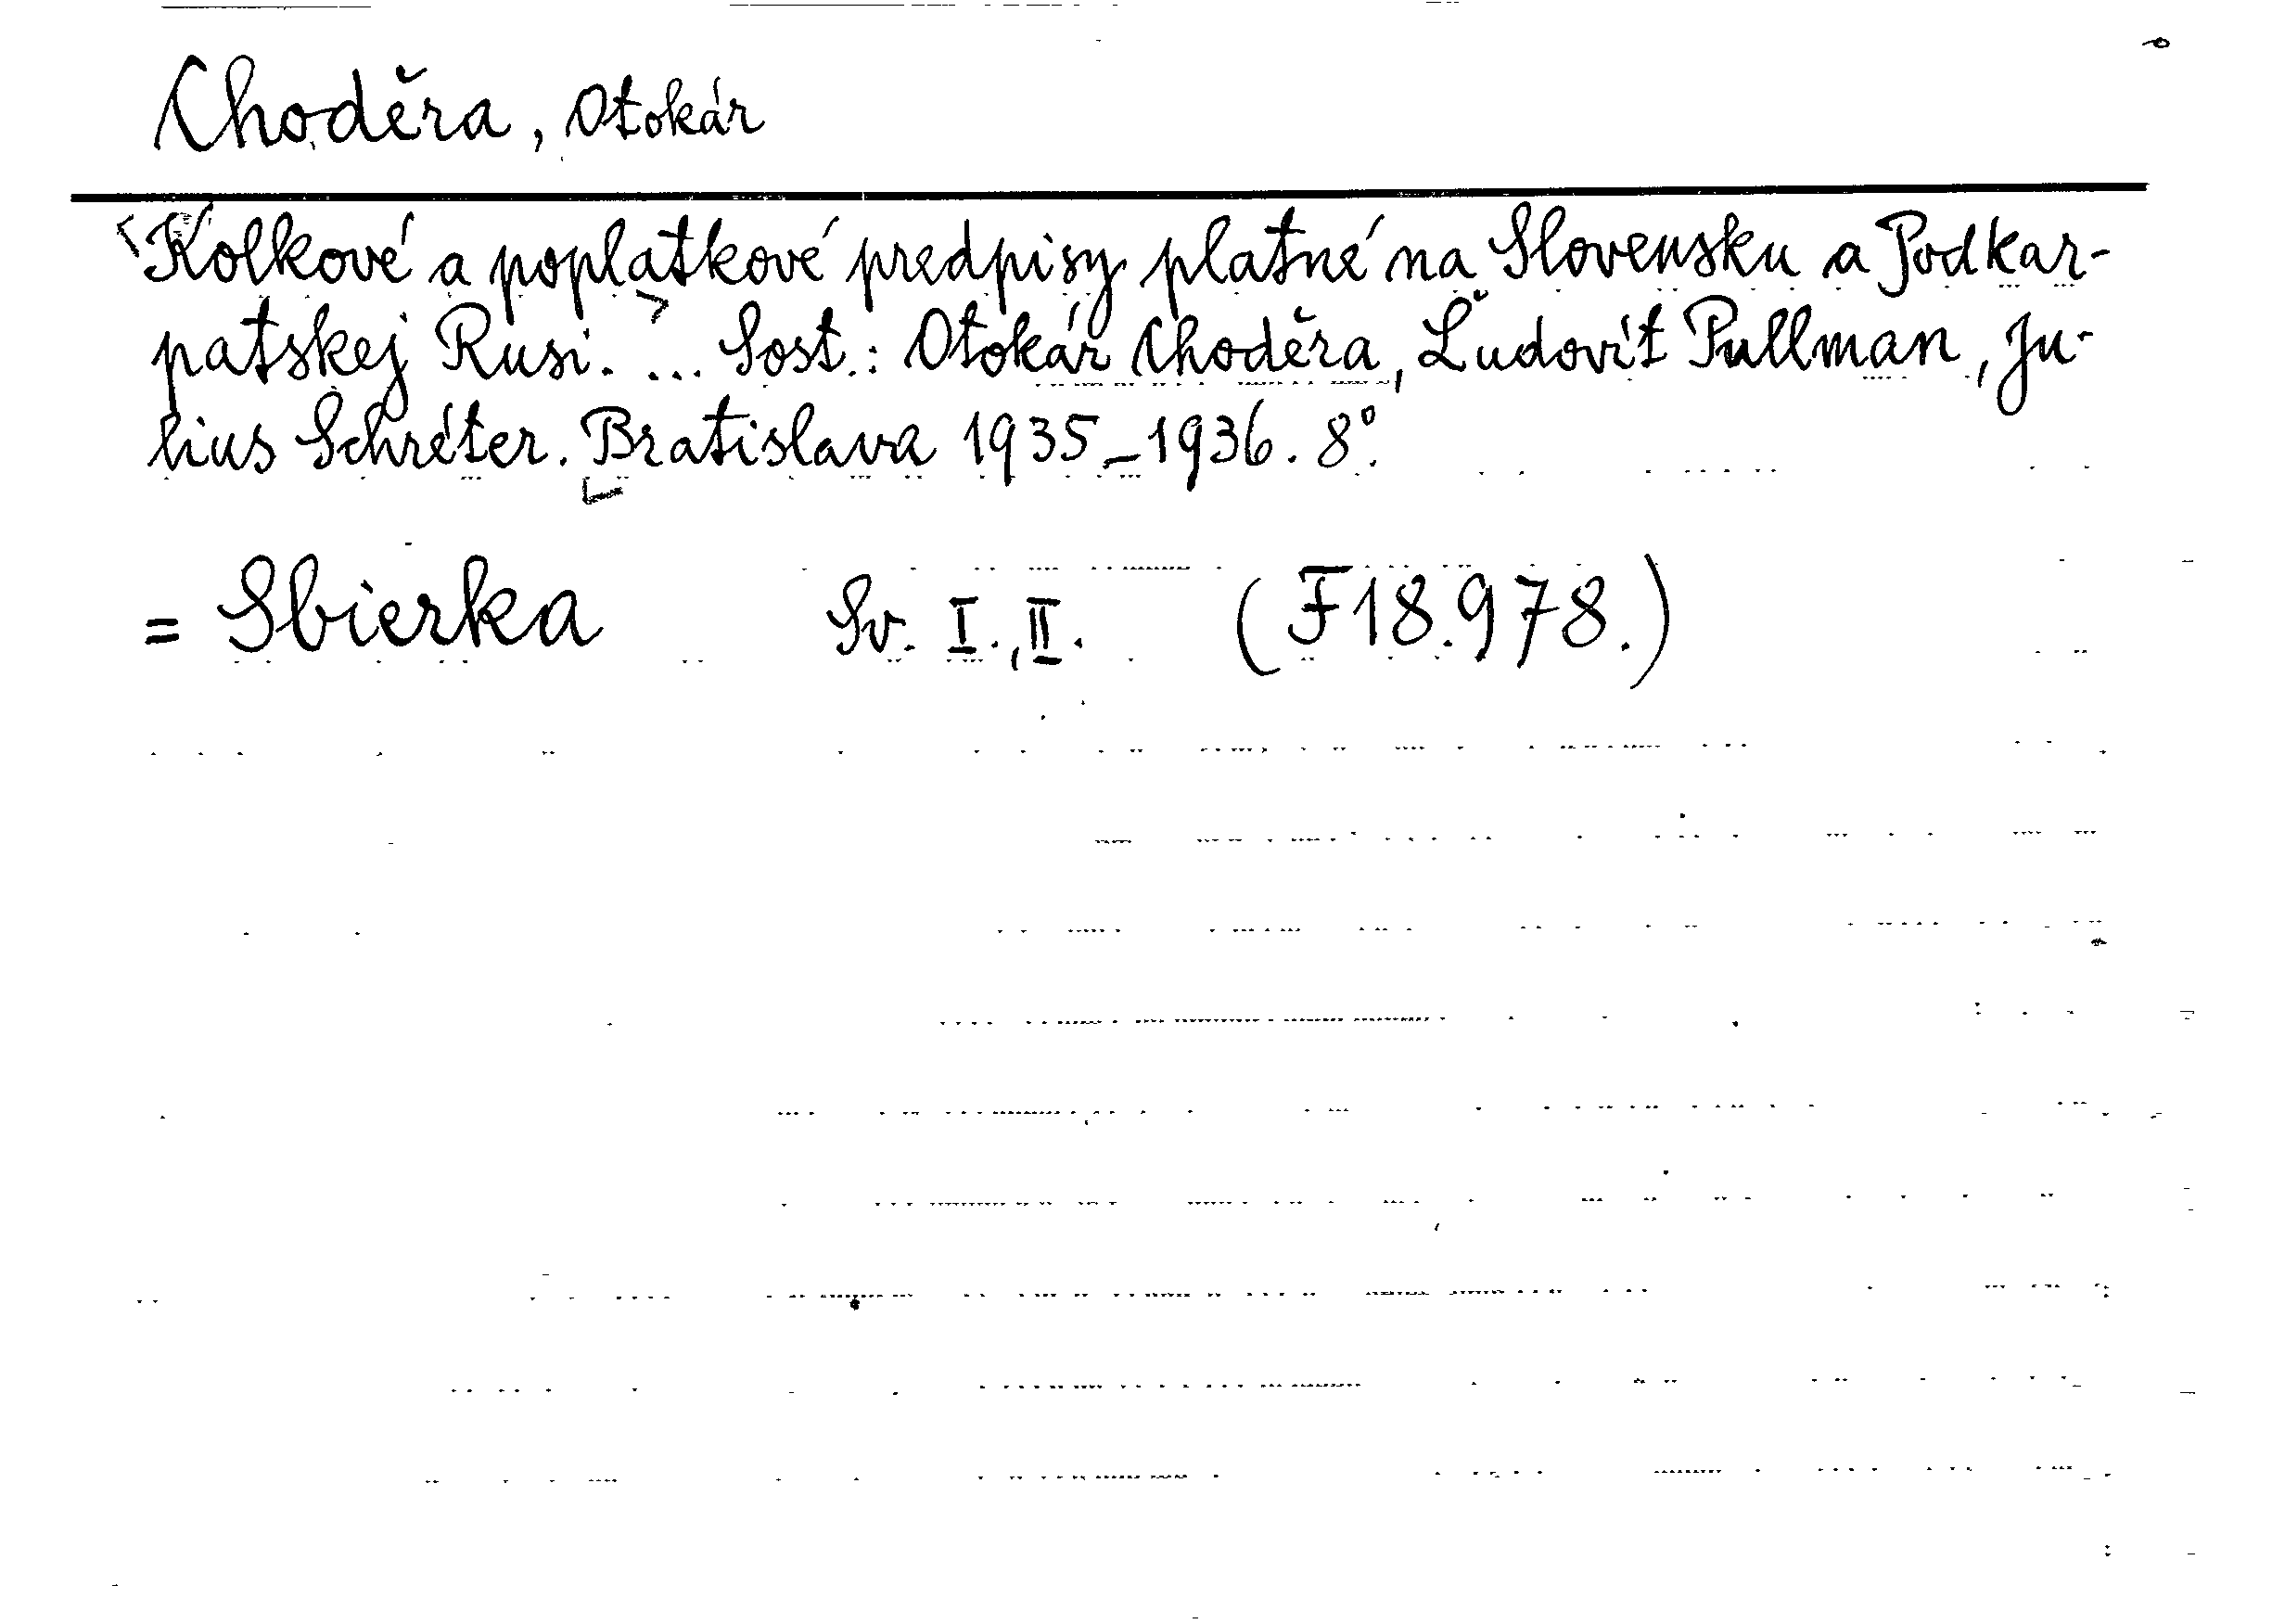 Choděra, Otokár
Kolkové a poplatkové predpisy platné na Slovensku a Podkar-
patskej Rusi. ... Sost.: Otokár Choděra, Ľudovít Pullman, Ju-
lius Schréter. Bratislava 1935-1936. 8°.
= Sbierka Sv. I., II. (F18.978.)